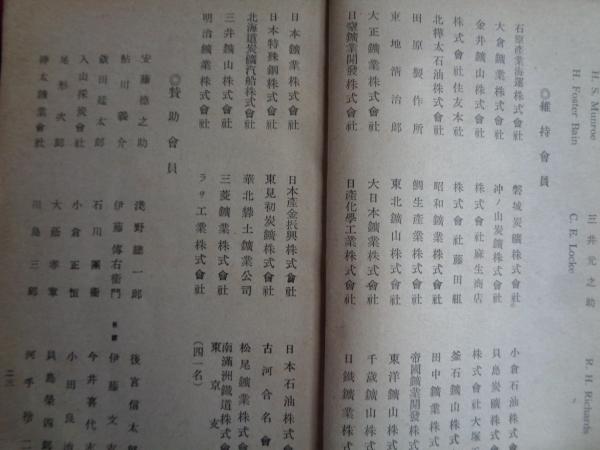 H. S. Munroe
H. Foster Bain
田井元之助
C. E. Locke
R. H. Richards
◎維持會員
石原產業海運株式會社
磐城炭礦株式會社
小倉石油株式
大倉鑛業株式會社
沖ノ山炭鑛株式會社
貝島炭礦株式
金井鑛山株式會社
株式會社麻生商店
株式會社大塚
株式會社住友本社
株式會社藤田組
釜石鑛山株式
北樺太石油株式會社
昭和鑛業株式會社
田中鑛業株式
田原製作所
鯛生產業株式會社
帝國鑛業開發株式
東地淸治郞
東北鑛山株式會社
東洋鑛山株式
大正鑛業株式會社
大日本鑛業株式會社
千歲鑛山株式
日窒鑛業開發株式會社
日產化學工業株式會社
日鐵鑛業株式
日本鑛業株式會社
日本產金振興株式會社
日本石油株式
日本特殊鋼株式會社
東見初炭鑛株式會社
古河合名會
北海道炭礦汽船株式會社
華北礬土鑛業公司
松尾鑛業株式
三井鑛山株式會社
三菱鑛業株式會社
南滿洲鐵道株式
東京支
明治鑛業株式會社
ラサ工業株式會社
(四一名)
◎贊助會員
安藤德之助
淺野總一郞
後宮信太郞
鮎川義介
伊藤傳右衞門
伊藤文
石川
今井喜代
入山採炭會社
小倉正恒
小田良
尾形次郞
大藤
貝島榮四
樺太鑛業會社
島三郞
河手
二三